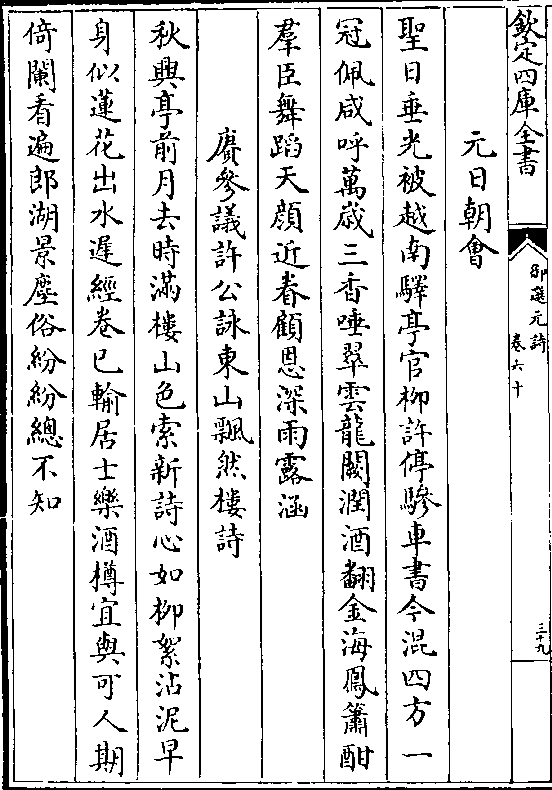 欽定四庫全書
御選元詩
卷六十
三十九
元日朝會
聖日垂光被越南驛亭官柳許停驂車書今混四方一
冠佩咸呼萬歲三香唾翠雲龍闕潤酒翻金海鳳簫酣
羣臣舞蹈天顔近眷顧恩深雨露涵
賡參議許公詠東山飄然樓詩
秋興亭前月去時滿樓山色索新詩心如柳絮沾泥早
身似蓮花出水遲經卷已輸居士樂酒樽宜與可人期
倚闌看遍郎湖景塵俗紛紛總不知